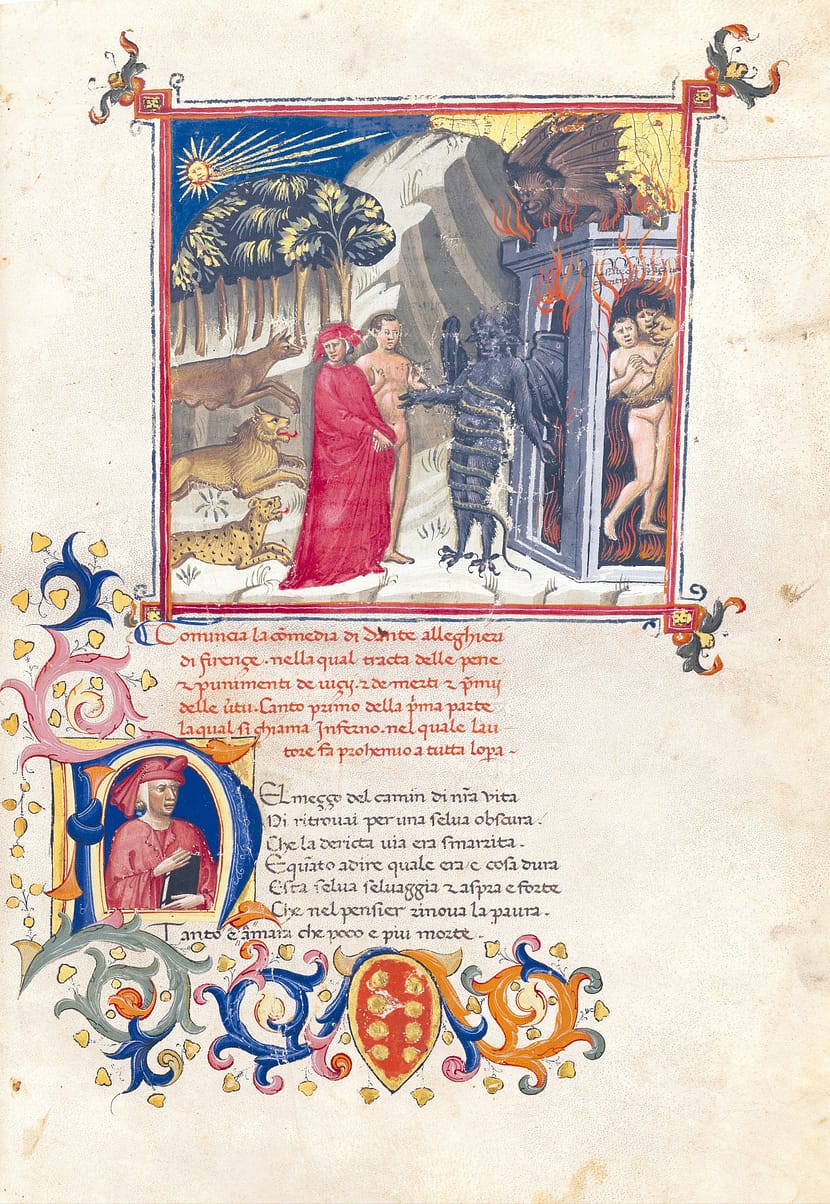 Comincia la cōmedia di dante alleghieri
di firençe. nella qual tracta delle pene
⁊ punimenti de uiçij. ⁊ de meriti ⁊ p̄mij
delle u̅tu. Canto primo della p̄ma parte
la qual si chiama Inferno. nel quale lau
tore fa prohemio a tutta lopa.
NEl meçço del camin di nr̄a uita
Mi ritrouai per una selua obscura.
Che la diricta uia era smarrita.
E quāto adire quale era e cosa dura
Esta selua seluaggia ⁊ aspra e forte
Che nel pensier rinoua la paura.
Tanto ē amara che poco e piu morte.